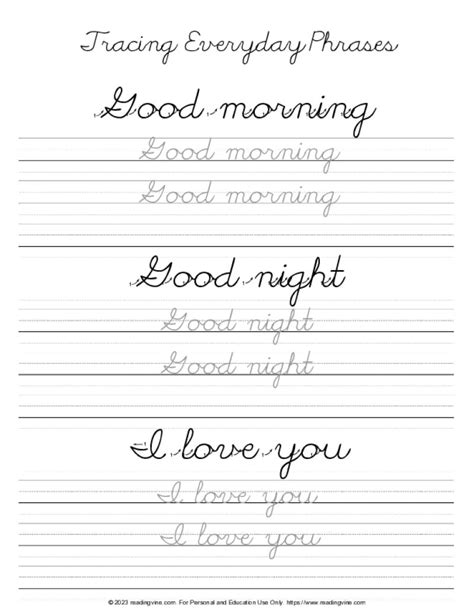 Tracing Everyday Phrases
Good morning
Good morning
Good morning
Good night
Good night
Good night
I love you
I love you
I love you
© 2023 readingvine.com For Personal and Education Use Only. https://www.readingvine.com